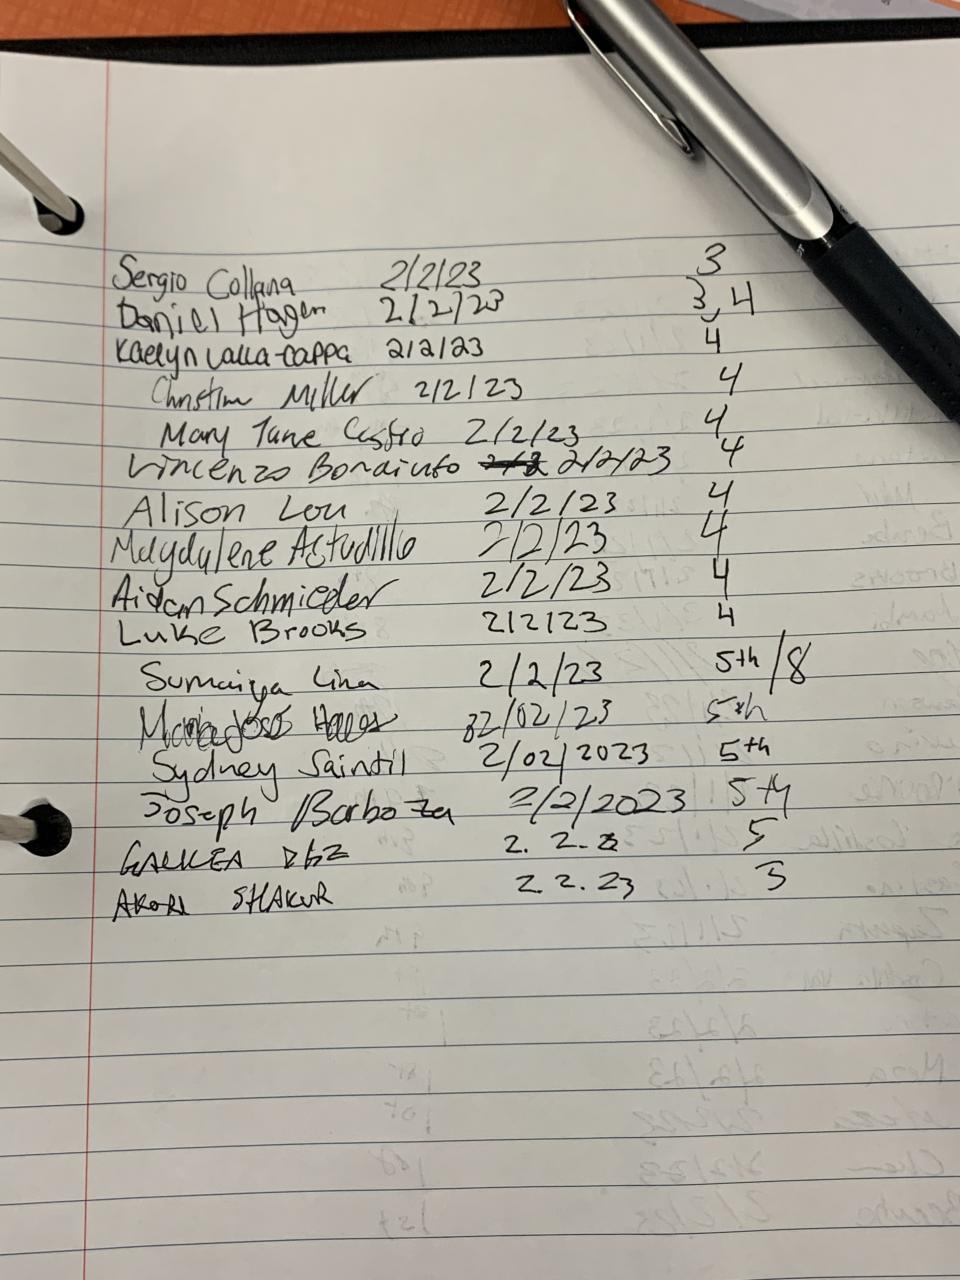 Sergio Collana 2/2/23 3
Daniel Hagen 2/2/23 3, 4
Kaelyn Lalla-Cappa 2/2/23 4
Christine Miller 2/2/23 4
Mary Jane Castro 2/2/23 4
Vincenzo Bonaiuto 2/2/23 4
Alison Lou 2/2/23 4
Magdylene Astudillo 2/2/23 4
Aidan Schmieder 2/2/23 4
Luke Brooks 2/2/23 4
Sumaiya Lina 2/2/23 5th/8
02/02/23 5th
Sydney Saintil 2/02/2023 5th
Joseph Barboza 2/2/2023 5th
2. 2. 5
SHAKUR 2.2.23 5